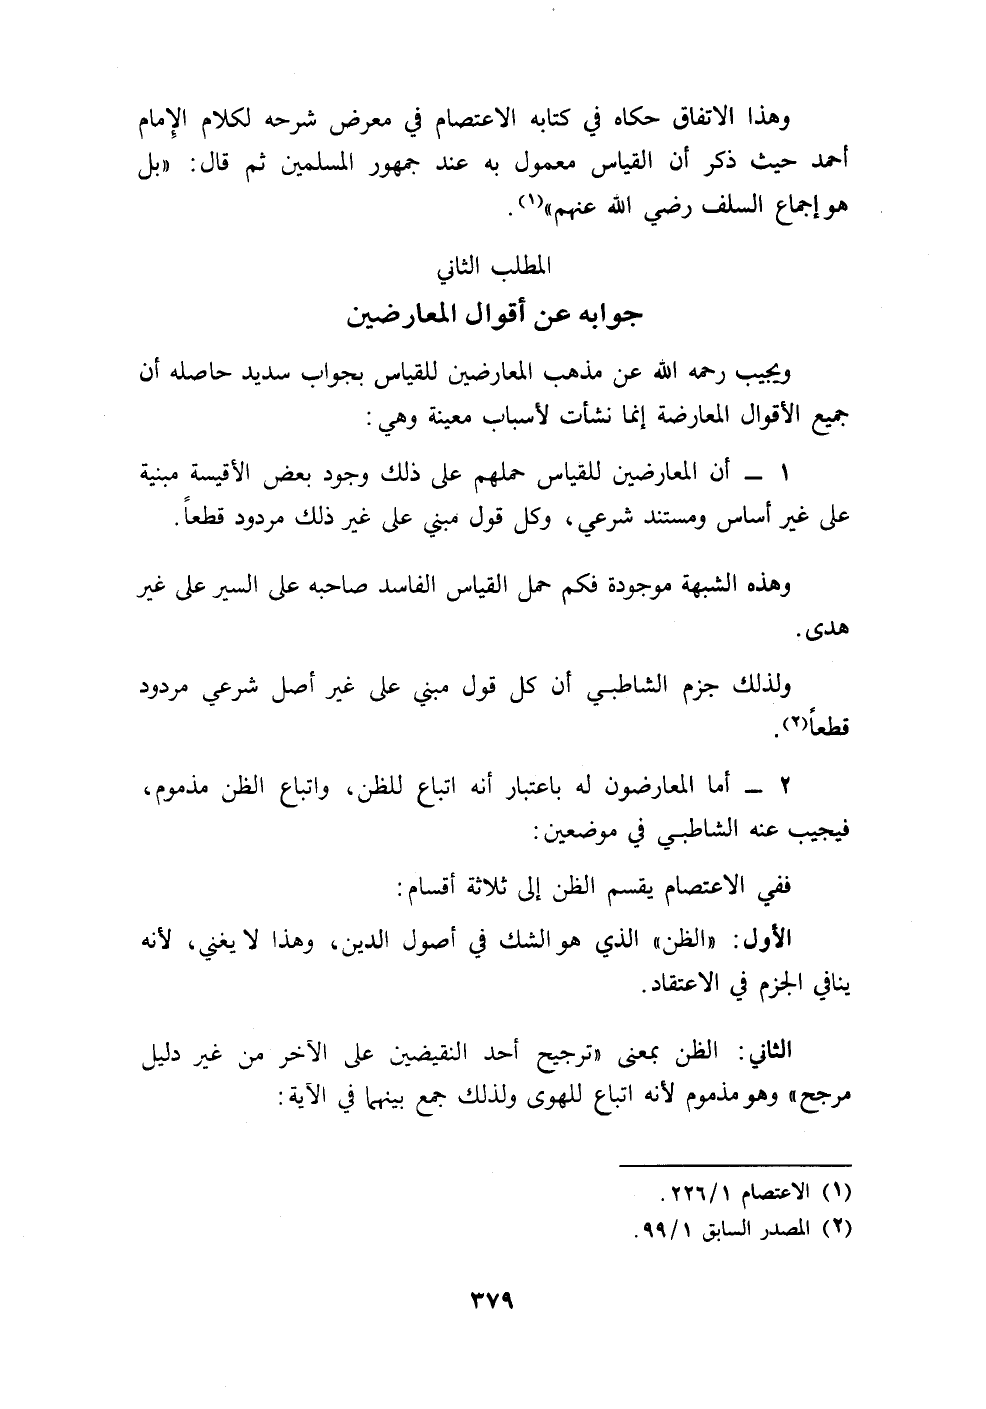 وهذا الاتفاق حكاه في كتابه الاعتصام في معرض شرحه لكلام الإمام
أحمد حيث ذكر أن القياس معمول به عند جمهور المسلمين ثم قال: «بل
هو إجماع السلف رضي الله عنهم»(١).
المطلب الثاني
جوابه عن أقوال المعارضين
ويجيب رحمه الله عن مذهب المعارضين للقياس بجواب سديد حاصله أن
جميع الأقوال المعارضة إنما نشأت لأسباب معينة وهي:
١ ـ أن المعارضين للقياس حملهم على ذلك وجود بعض الأقيسة مبنية
على غير أساس ومستند شرعي، وكل قول مبني على غير ذلك مردود قطعاً.
وهذه الشبهة موجودة فكم حمل القياس الفاسد صاحبه على السير على غير
هدى.
ولذلك جزم الشاطبي أن كل قول مبني على غير أصل شرعي مردود
قطعاً(٢).
٢ ـ أما المعارضون له باعتبار أنه اتباع للظن، واتباع الظن مذموم،
فيجيب عنه الشاطبي في موضعين:
ففي الاعتصام يقسم الظن إلى ثلاثة أقسام:
الأول: «الظن» الذي هو الشك في أصول الدين، وهذا لا يغني، لأنه
ينافي الجزم في الاعتقاد.
الثاني: الظن بمعنى «ترجيح أحد النقيضين على الآخر من غير دليل
مرجح» وهو مذموم لأنه اتباع للهوى ولذلك جمع بينهما في الآية:
(١) الاعتصام ٢٢٦/١.
(٢) المصدر السابق ٩٩/١.
٣٧٩